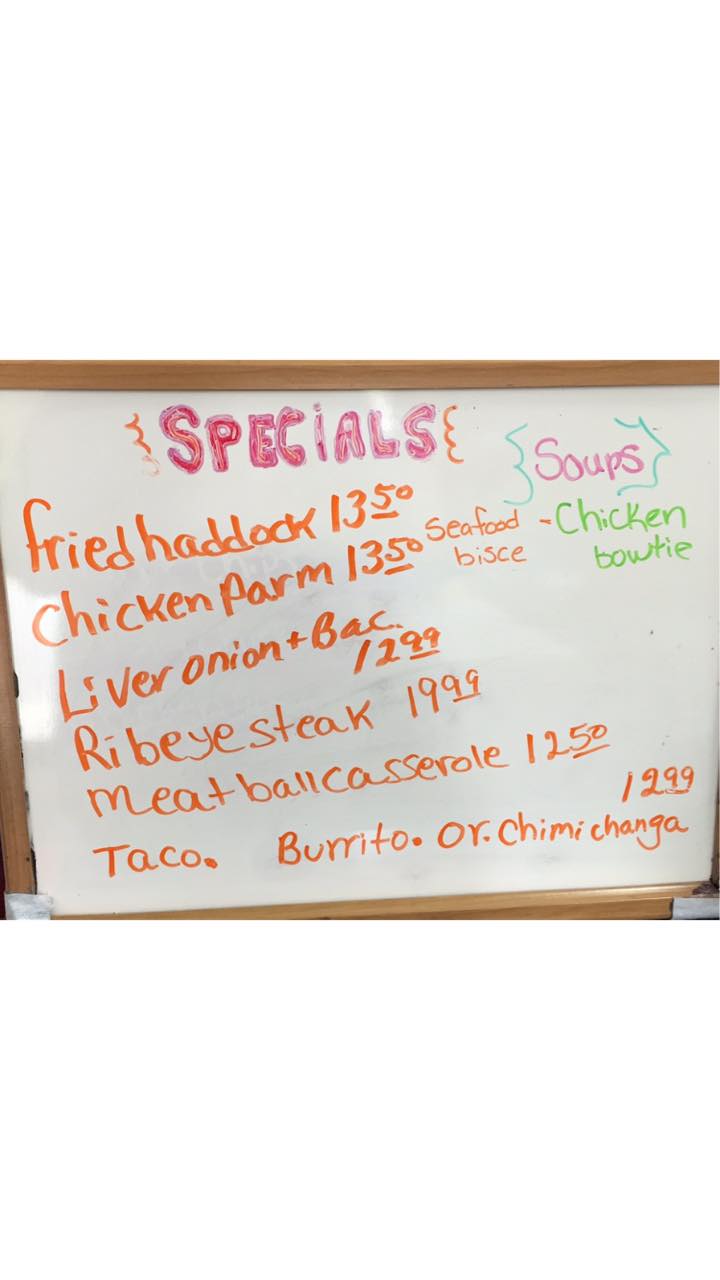 SPECIALS
fried haddock 13 50
Chicken Parm 13 50
Liver onion + Bac.
12 99
Ribeye steak 19 99
meatball casserole 12 50
12 99
Taco. Burrito. Or. Chimichanga
Soups
Seafood - Chicken
bisce bowtie